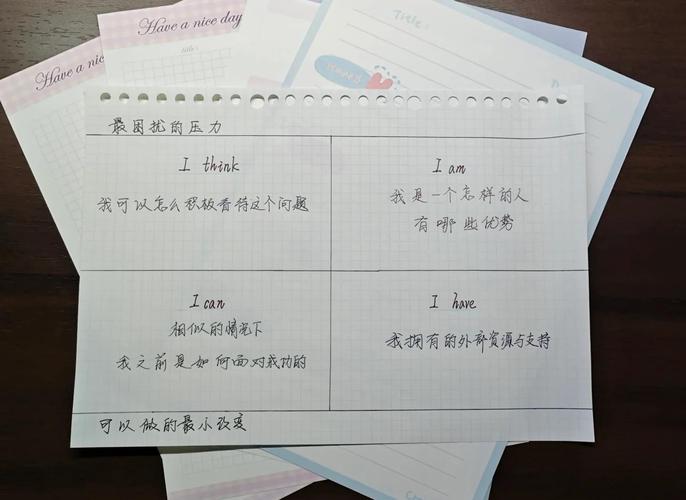 Have a nice day
Have a nic
title:
Title:
最困扰的压力
I think
我可以怎么积极看待这个问题
I am
我是一个怎样的人
有哪些优势
I can
相似的情况下
我之前是如何面对成功的
I have
我拥有的外部资源与支持
可以做的最小改变